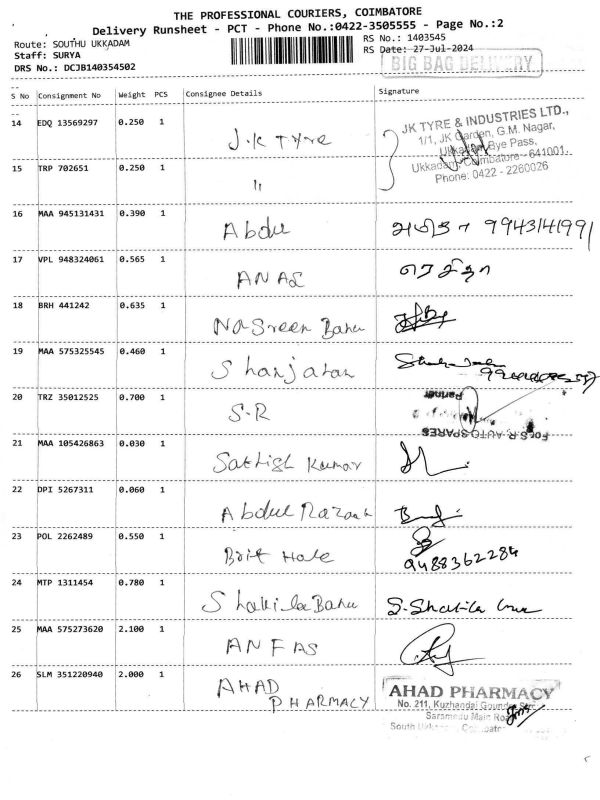 THE PROFESSIONAL COURIERS, COIMBATORE
Delivery Runsheet - PCT - Phone No.:0422-3505555 - Page No.:2
Route: SOUTHU UKKADAM RS No.: 1403545
Staff: SURYA RS Date: 27-Jul-2024
DRS No.: DCJB140354502 BIG BAG DELIVERY
S No Consignment No Weight PCS Consignee Details Signature
14 EDQ 13569297 0.250 1 J.K TYre
JK TYRE & INDUSTRIES LTD.,
1/1, JK Garden, G.M. Nagar,
Ukkadam Bye Pass,
Ukkadam, Coimbatore - 641001.
Phone: 0422 - 2260026
15 TRP 702651 0.250 1 "
16 MAA 945131431 0.390 1 Abdu 9943141991
17 VPL 948324061 0.565 1 ANAS
18 BRH 441242 0.635 1 Nasreen Banu
19 MAA 575325545 0.460 1 Shanjahan
20 TRZ 35012525 0.700 1 S.R
For S.R. AUTO SPARES
Partner
21 MAA 105426863 0.030 1 Sathish Kumar
22 DPI 5267311 0.060 1 Abdul Razak
23 POL 2262489 0.550 1 Brit Hale 9488362284
24 MTP 1311454 0.780 1 Shakila Banu S. Shakila
25 MAA 575273620 2.100 1 ANFAS
26 SLM 351220940 2.000 1 AHAD PHARMACY
AHAD PHARMACY
No. 211, Kuzhandai Gounder
Main Road
South